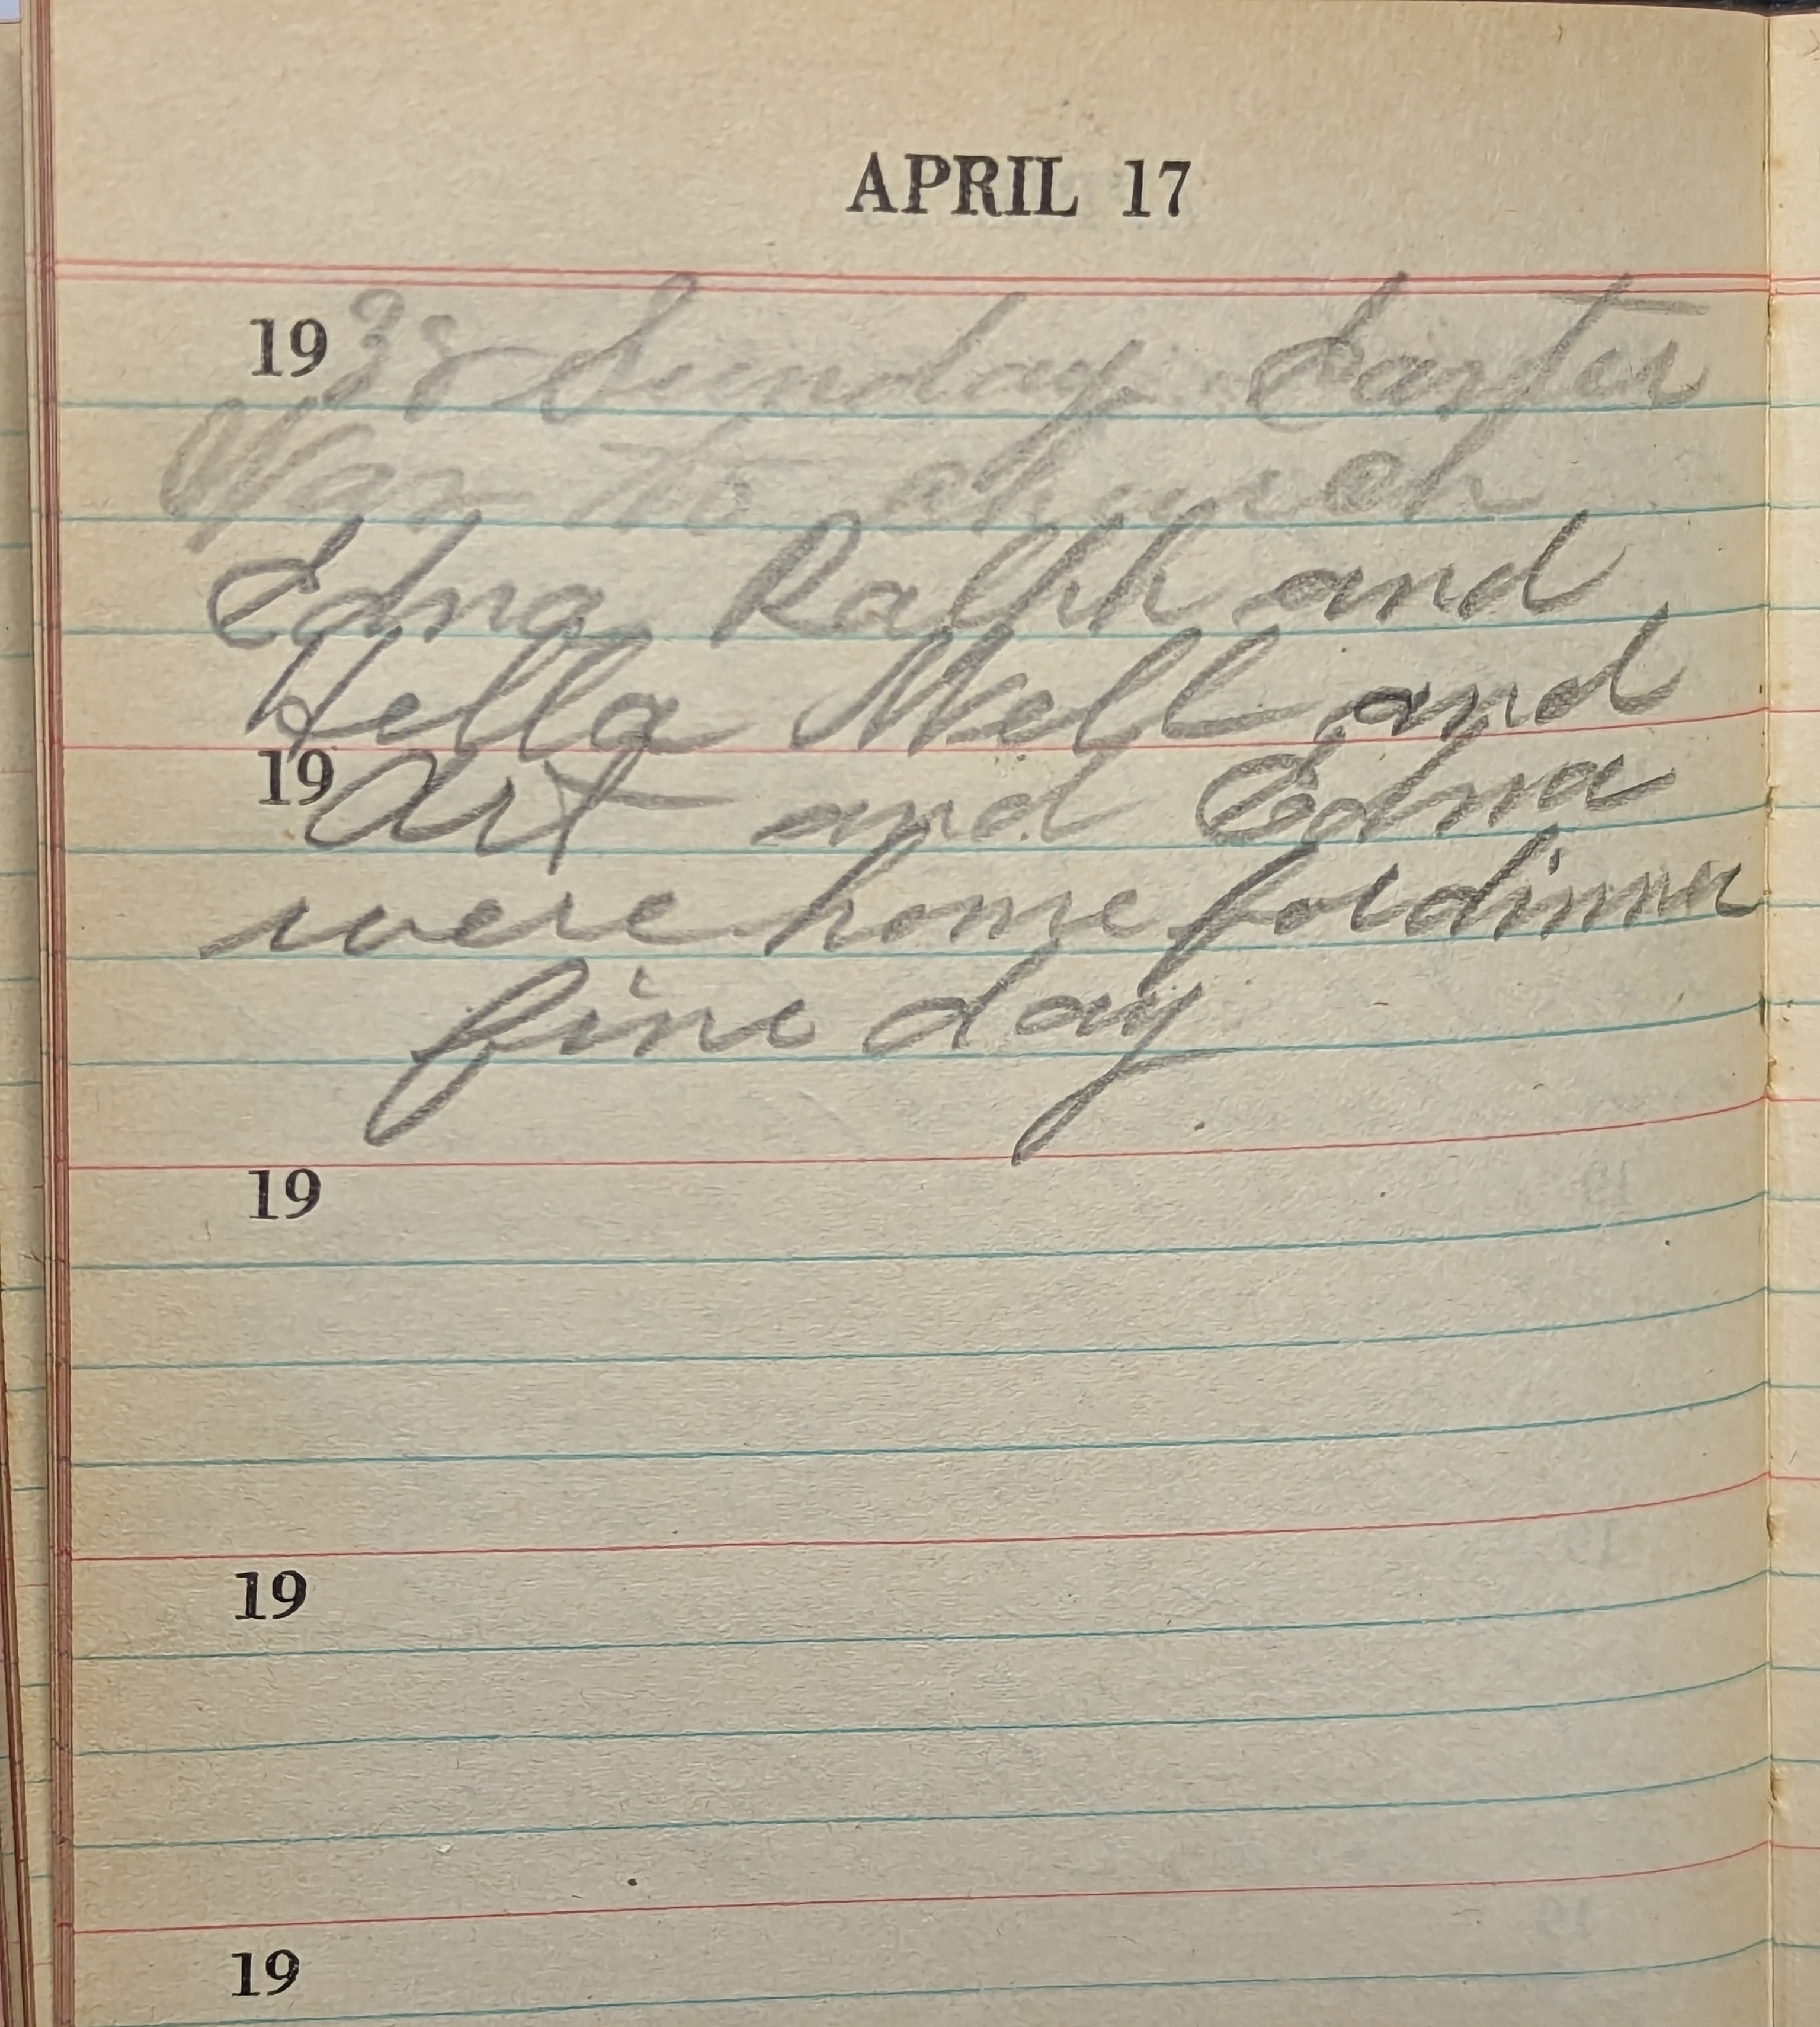 APRIL 17
1938 Sunday Easter
Was to church
Edna Ralph and
Hella Mell and
19 Art and Edna
were home for dinner
fine day
19
19
19